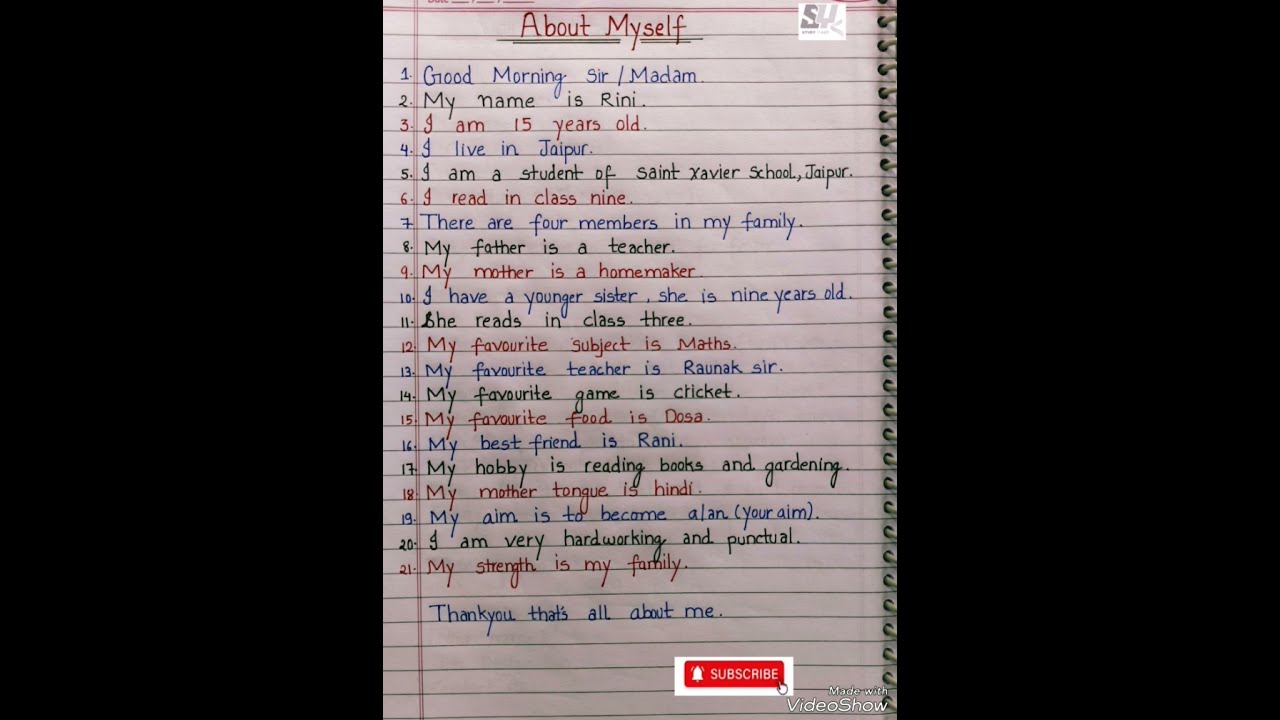 Date
About Myself
1. Good Morning Sir / Madam.
2. My name is Rini.
3. I am 15 years old.
4. I live in Jaipur.
5. I am a student of saint xavier school, Jaipur.
6. I read in class nine.
7. There are four members in my family.
8. My father is a teacher.
9. My mother is a homemaker.
10. I have a younger sister, she is nine years old.
11. She reads in class three.
12. My favourite subject is Maths.
13. My favourite teacher is Raunak sir.
14. My favourite game is cricket.
15. My favourite food is Dosa.
16. My best friend is Rani.
17. My hobby is reading books and gardening.
18. My mother tongue is hindi.
19. My aim is to become a/an (your aim).
20. I am very hardworking and punctual.
21. My strength is my family.
Thankyou that's all about me.
SUBSCRIBE
Made with
VideoShow